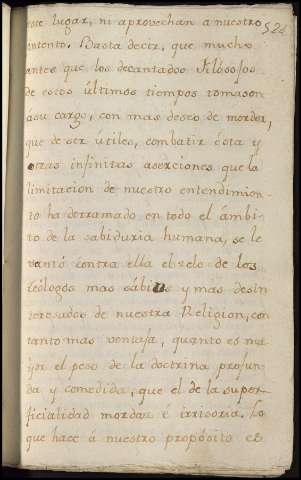 este lugar, ni aprovechan a nuestro
524
intento. Basta decir, que mucho
antes que los decantados Filosofos
de estos últimos tiempos tomason
ásu cargo, con mas deseo de morder,
que de ser útiles, combatir ésta y
otras infinitas aserciones que la
limitacion de nuestro entendimien-
to ha derramado en todo el ámbi-
to de la sabiduria humana, se le
vantó contra ella el zelo de los
Teólogos mas sábios y mas desin
teresados de nuestra Religion, con
tanto mas ventaja, quanto es ma
yor el peso de la doctrina profun
da y comedida, que el de la super
ficialidad mordaz é irrisoria. Lo
que hace á nuestro propósito es